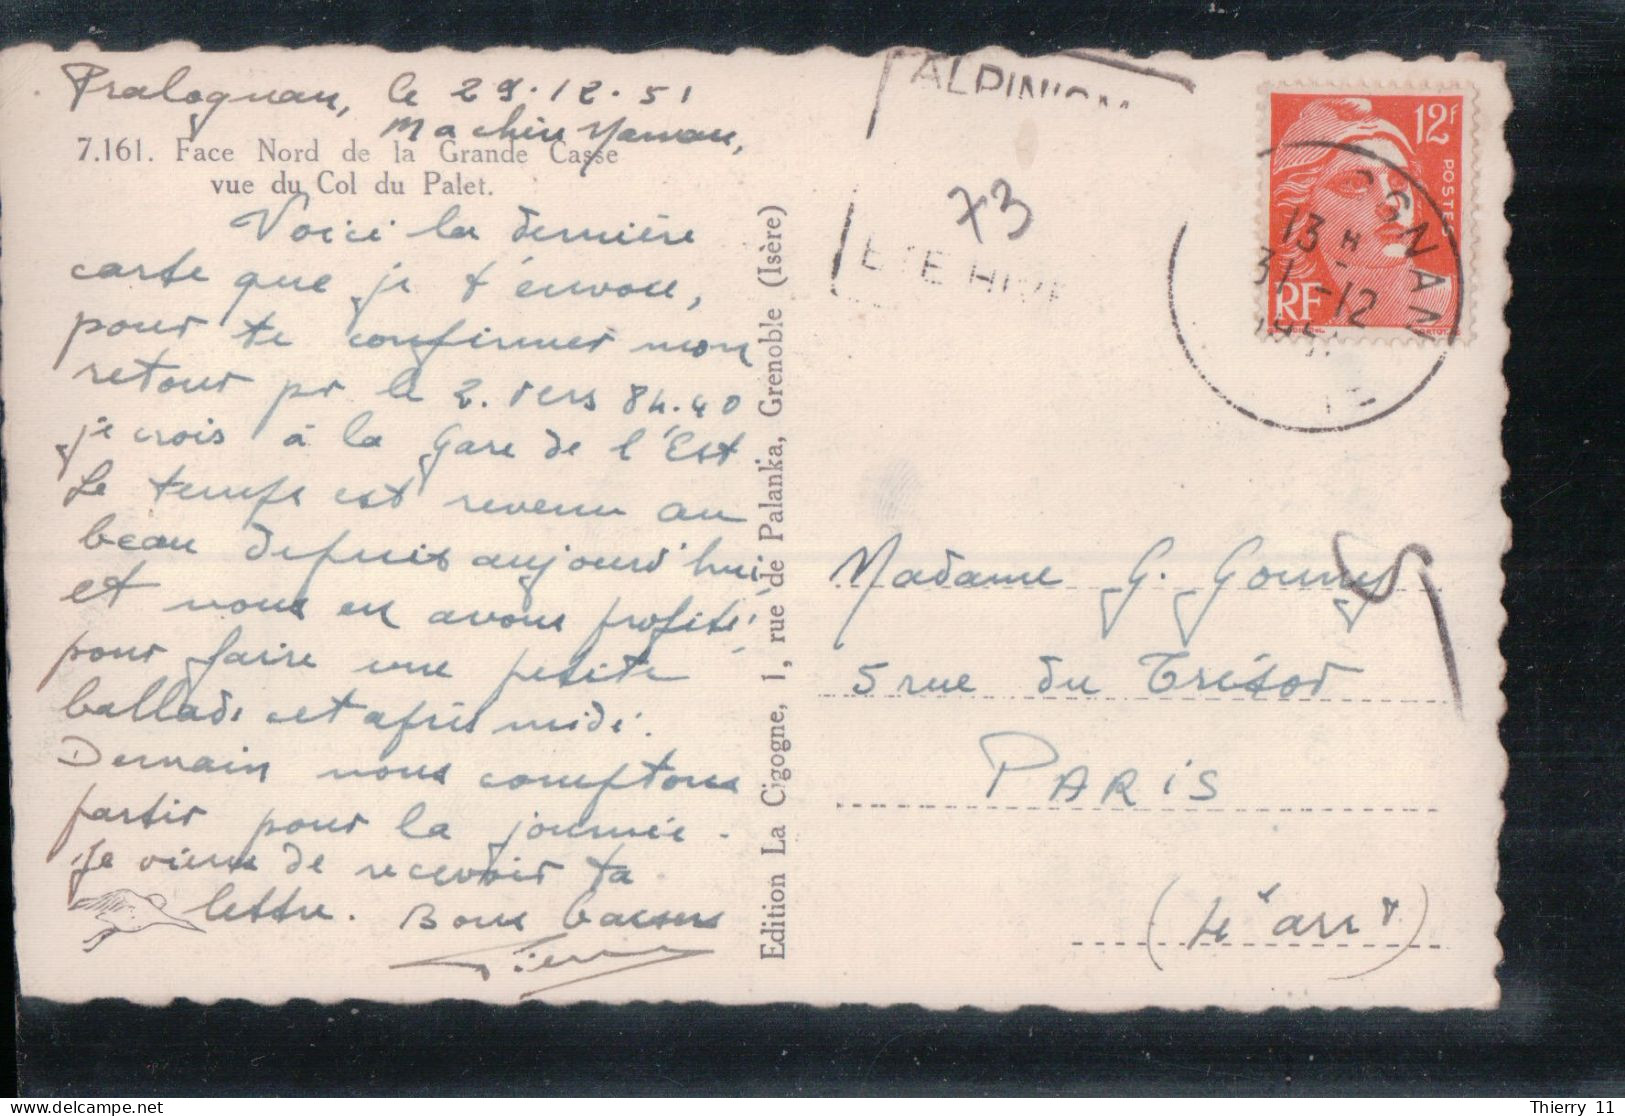 Pralognan, le 29.12.51
Ma chère Maman,
7.161. Face Nord de la Grande Casse
vue du Col du Palet.
Voici la dernière
carte que je t'envoie,
pour te confirmer mon
retour pr le 2. vers 8h.40
je crois à la Gare de l'Est
Le temps est revenu au
beau depuis aujourd'hui
et nous en avons profité
pour faire une petite
ballade cet après midi.
Demain nous comptons
partir pour la journée.
Je viens de recevoir ta
lettre. Bons baisers
Pierre
Edition La Cigogne, 1, rue de Palanka, Grenoble (Isère)
ALPINISM
ETE HIVE
x3
12f
POSTES
RF
OGNAN
13 H
31-12
Madame G. Gouny
5 rue du Trésor
PARIS
(4e arrt)
Thierry 11